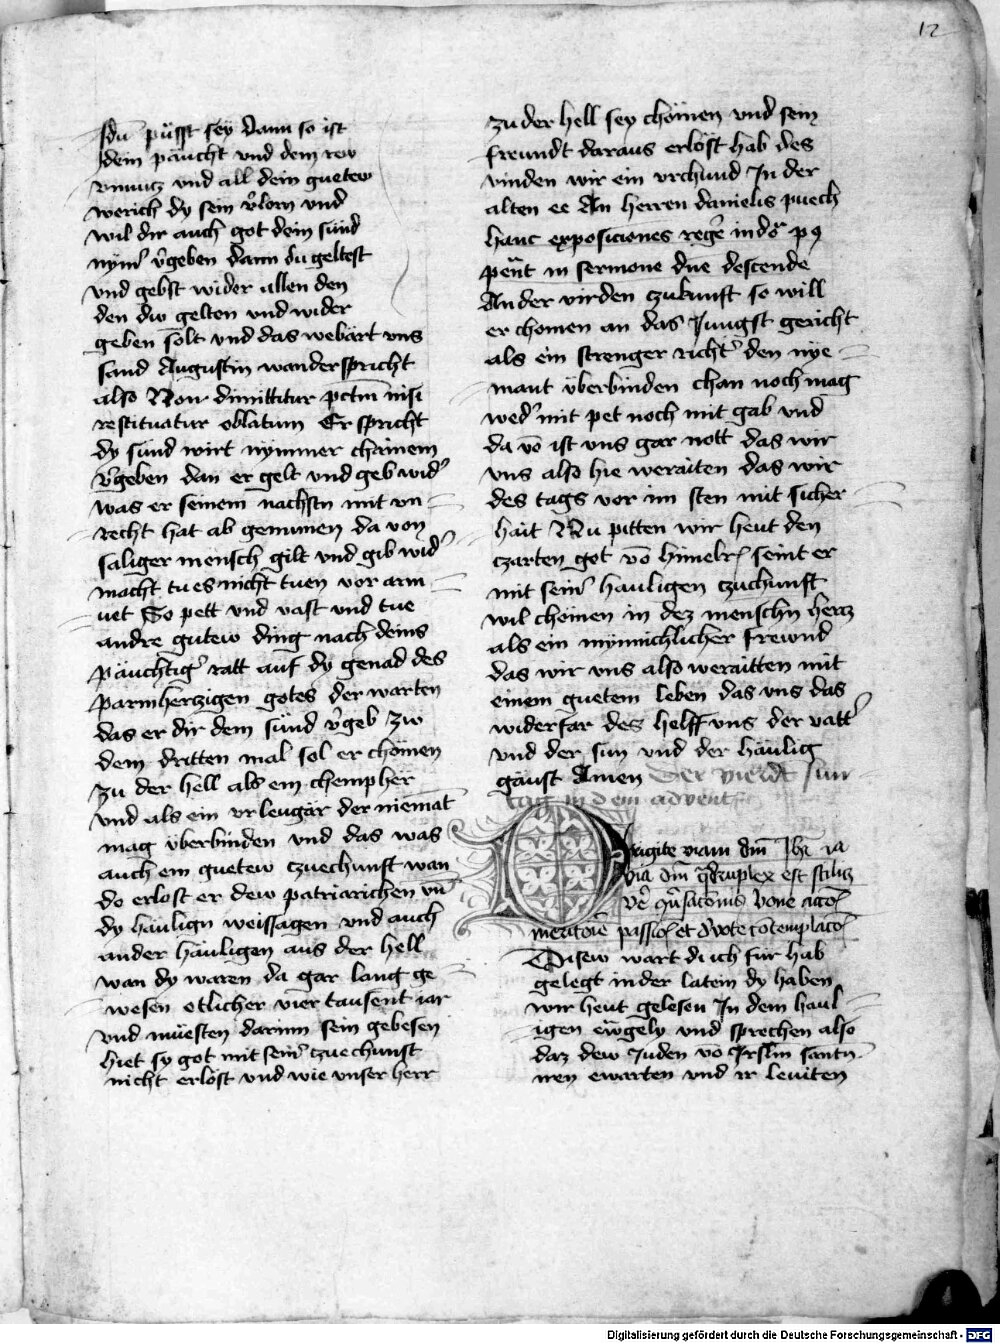 12
sdu püsst sey dann so ist
dein päucht vnd dein rew
vnnucz vnd all dein guetew
werich dy sein v̉lorn vnd
wil dir auch got dein sünd
nym̉ v̉geben dann du geltest
vnd gebst wider allen den
den dw gelten vnd wider
geben solt vnd das webärt vns
sand Augustin wander spricht
also Non dimittitur pctm̄ nisi
restituatur oblatum Er spricht
dy sünd wirt nymmer chainem
v̉geben dan er gelt vnd geb wid̉
was er seinem nachstn mit vn-
recht hat ab genumen da von
saliger mensch gilt vnd gib wid̉
macht tu es nicht tuen vor arm-
uet So pett vnd vast vnd tue
andre gutew ding nach deins
päuchtig̉ ratt auf dy genad des
parmhertzigen gotes der warten
das er dir dein sünd v̉geb Zw
dem dritten mal sol er chömen
zu der hell als ein chempher
vnd als ein vrleugär der niemāt
mag überbinden vnd das was
auch ein guetew czuechunft wan
do erlost er dew patriarichen vn̄
dy häulign weissagen vnd auch
ander häuligen aus der hell
wan dy waren da gar lang ge-
wesen etlicher vier tausent iar
vnd müesten darinn sein gebesen
hiet sy got mit sein̉ czuechunft
nicht erlöst vnd wie vnser herr
zu der hell sey chömen vnd sein
freundt daraus erlöst hab des
vinden wir ein vrchund In der
alten ee An herren danielis puech
hanc exposiciones
in sermone dn̄e descende
An der virden czukunft so will
er chomen an das Jungst gericht
als ein strenger richt̉ den nye-
mant überbinden chan noch mag
wed̉ mit pet noch mit gab vnd
da vō ist vns gar nott das wir
vns also hie weraiten das wir
des tags vor im sten mit sicher-
hait Nu pitten wir heut den
czarten got vō himelr seint er
mit sein̉ hauligen czuchunft
wil chömen in dez menschn hercz
als ein mynnichlicher frewnd
das wir vns also weraitten mit
einem guetem leben das vns das
widerfar des helff vns der vatt̉
vnd der sun vnd der häulig
gäust Amen Der vierdt sun-
tag in dem advent
Dirigite viam dn̄i
via dn̄i est
passiōis et
Disew wart di ich für hab
gelegt in der latein dy haben
wir heut gelesen In dem haul-
igen ewgely vnd sprechen also
daz dew Juden vō Jrslm̄ santn-
nen ewarten vnd ir leuiten
Digitalisierung gefördert durch die Deutsche Forschungsgemeinschaft - DFG